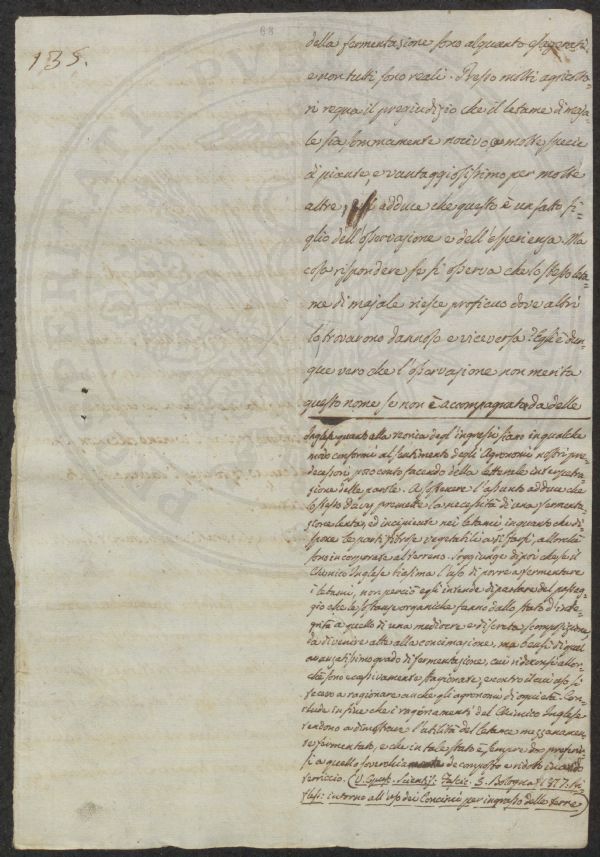 88
135.
della fermentazione sono alquanto esagerati,
e non tutti sono reali. Presso molti agricolto-
ri regna il pregiudizio che il letame di maja-
le sia sommamente nocivo a molte specie
di piante, e vantaggiosissimo per molte
altre, si adduce che questo è un fatto fi-
glio dell'osservazione e dell'esperienza. Ma
cosa rispondere se si osserva che lo stesso leta-
me di majale riesce proficuo dove altri
lo trovarono dannoso e viceversa? Egli è dun-
que vero che l'osservazione non merita
questo nome se non è accompagnata da delle
Inglese quanto alla teorica degl'ingrassi siano in qualche
modo conformi al sentimento degli Agronomi nostri pre-
decessori, poco conto facendo della letterale interpetra-
zione delle parole. A sostenere l'assunto adduce che
lo stesso Davy premette la necessità di una fermenta-
zione lenta, ed incipiente nei letami, in quanto che di-
spone le parti fibrose vegetabili a disfarsi, allorchè
sono incorporate al terreno. Soggiunge di poi che se il
Chimico Inglese biasima l'uso di porre a fermentare
i letami, non perciò egli intende di parlare del passag-
gio che le sostanze organiche fanno dallo stato d'inte-
grità a quello di una mediocre e discreta scomposizione,
da divenire atte alla concimazione, ma bensì di quel
avanzatissimo grado di fermentazione, cui riduconsi allor-
chè sono eccessivamente stagionate, e contro il cui uso si
fecero a ragionare anche gli agronomi di antichità. Con-
clude in fine che i ragionamenti del Chimico Inglese
tendono a dimostrare l'utilità del letame mezzanamen-
te fermentato, e che in tale stato è sempre da preferir-
si a quello soverchiamente decomposto e ridotto in
terriccio. (V. Opusc. Scientif. Fascic. 3. Bologna 1817.
intorno all'uso dei Concimi per ingrasso delle terre)